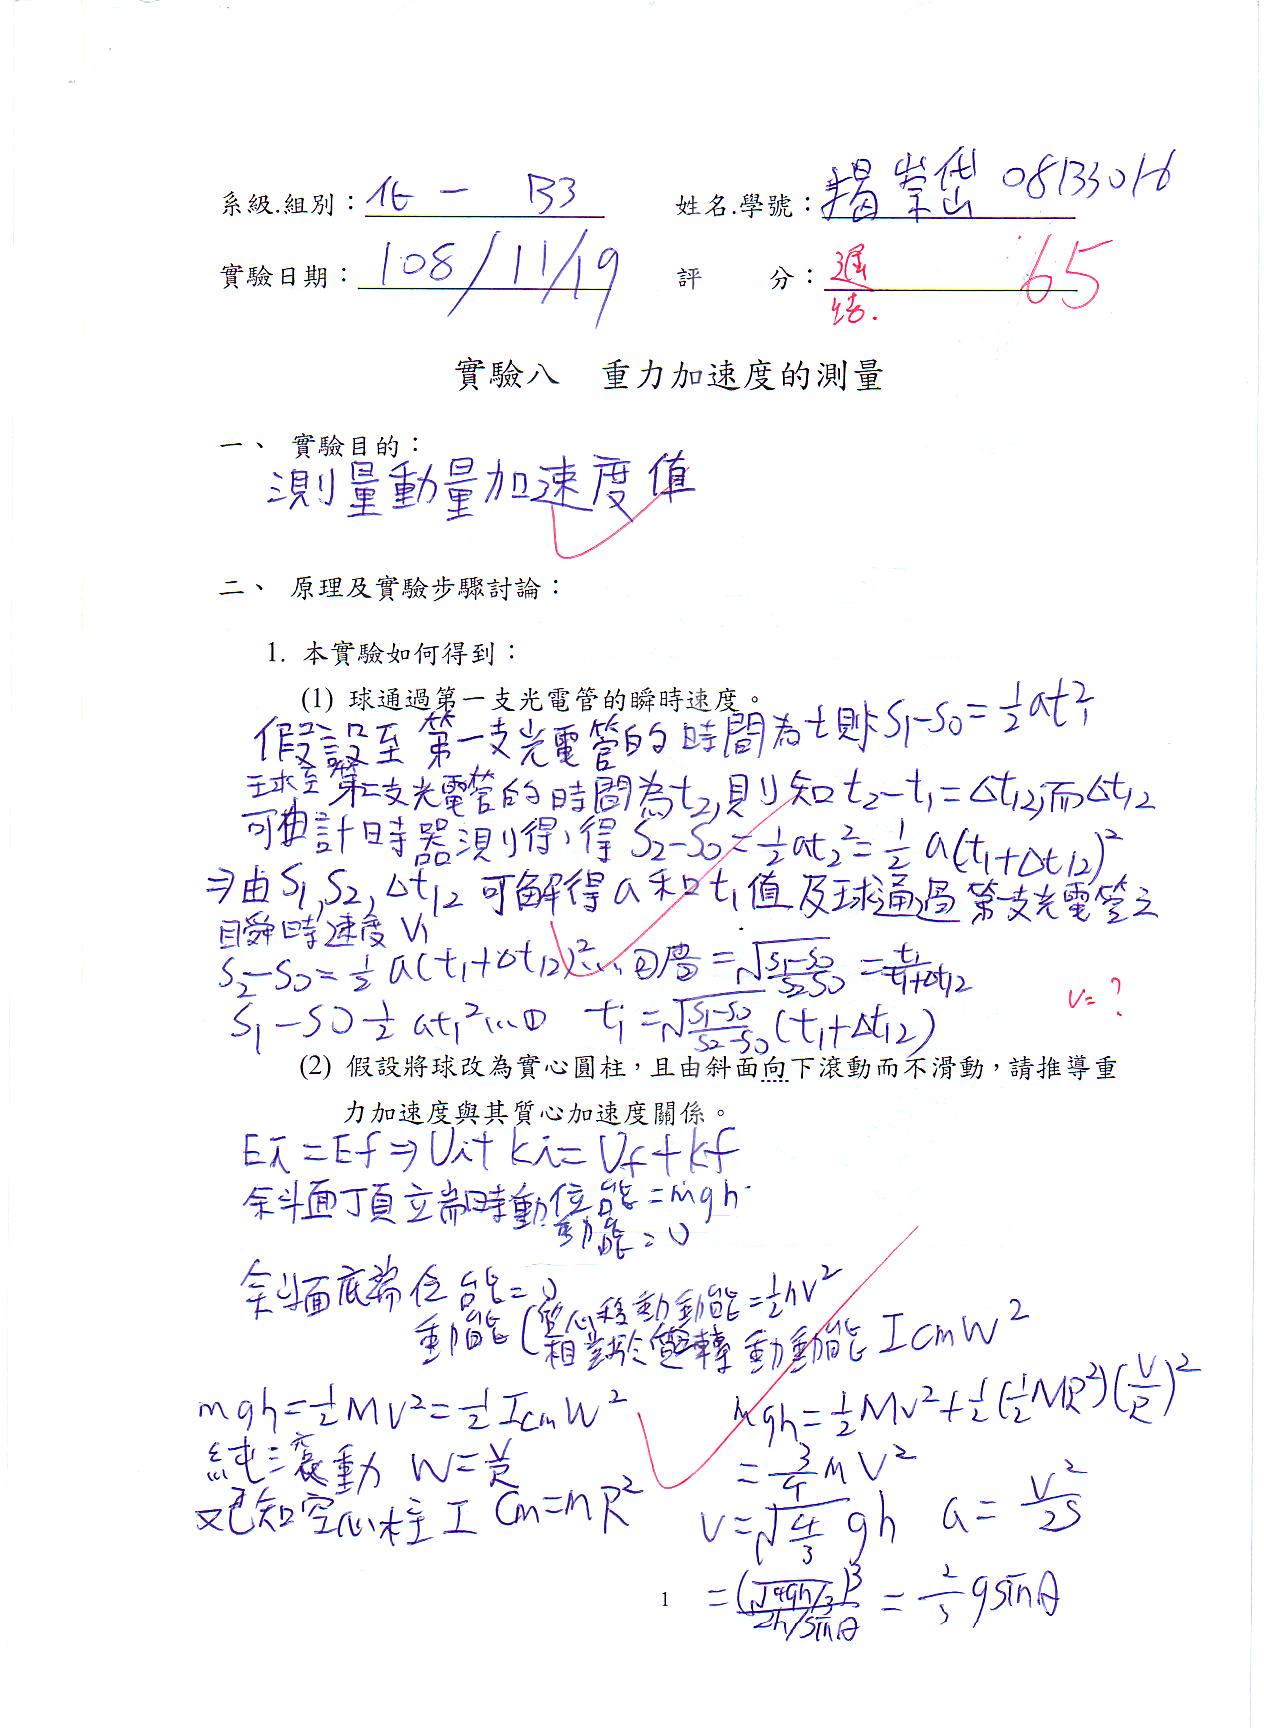 系級.組別：化一 B3
姓名.學號：楊崇岱 08133016
實驗日期：108/11/19
評 分：遲 65
實驗八 重力加速度的測量
一、 實驗目的：
測量動量加速度值
二、 原理及實驗步驟討論：
1. 本實驗如何得到：
(1) 球通過第一支光電管的瞬時速度。
假設至第一支光電管的時間為t則S₁-S₀=½at₁²
球至第二支光電管的時間為t₂,則知t₂-t₁=Δt₁₂,而Δt₁₂
可由計時器測得,得S₂-S₀=½at₂²=½a(t₁+Δt₁₂)²
⇒由S₁,S₂,Δt₁₂可解得a和t₁值及球通過第一支光電管之
瞬時速度V₁
S₂-S₀=½a(t₁+Δt₁₂)²...② =√(S₁-S₀/S₂-S₀)=t₁/t₁+Δt₁₂
v=?
S₁-S0 ½at₁²...① t₁=√(S₁-S₀/S₂-S₀)(t₁+Δt₁₂)
(2) 假設將球改為實心圓柱，且由斜面向下滾動而不滑動，請推導重
力加速度與其質心加速度關係。
Ei=Ef⇒Ui+ki=Uf+kf
斜面頂立端時動位能=mgh
動能=0
斜面底端位能=0
動能(質心移動動能=½ V²
相對於 轉動動能Icmw²
mgh=½Mv²=½Icmw²
純滾動 w=V/R
又已知空心柱I cm=mR²
mgh=½Mv²+½(½MR²)(V/R)²
=¾mv²
v=√(4/3)gh a=v²/2S
=(√4gh/3)³/2h/sinθ=⅔gsinθ
1